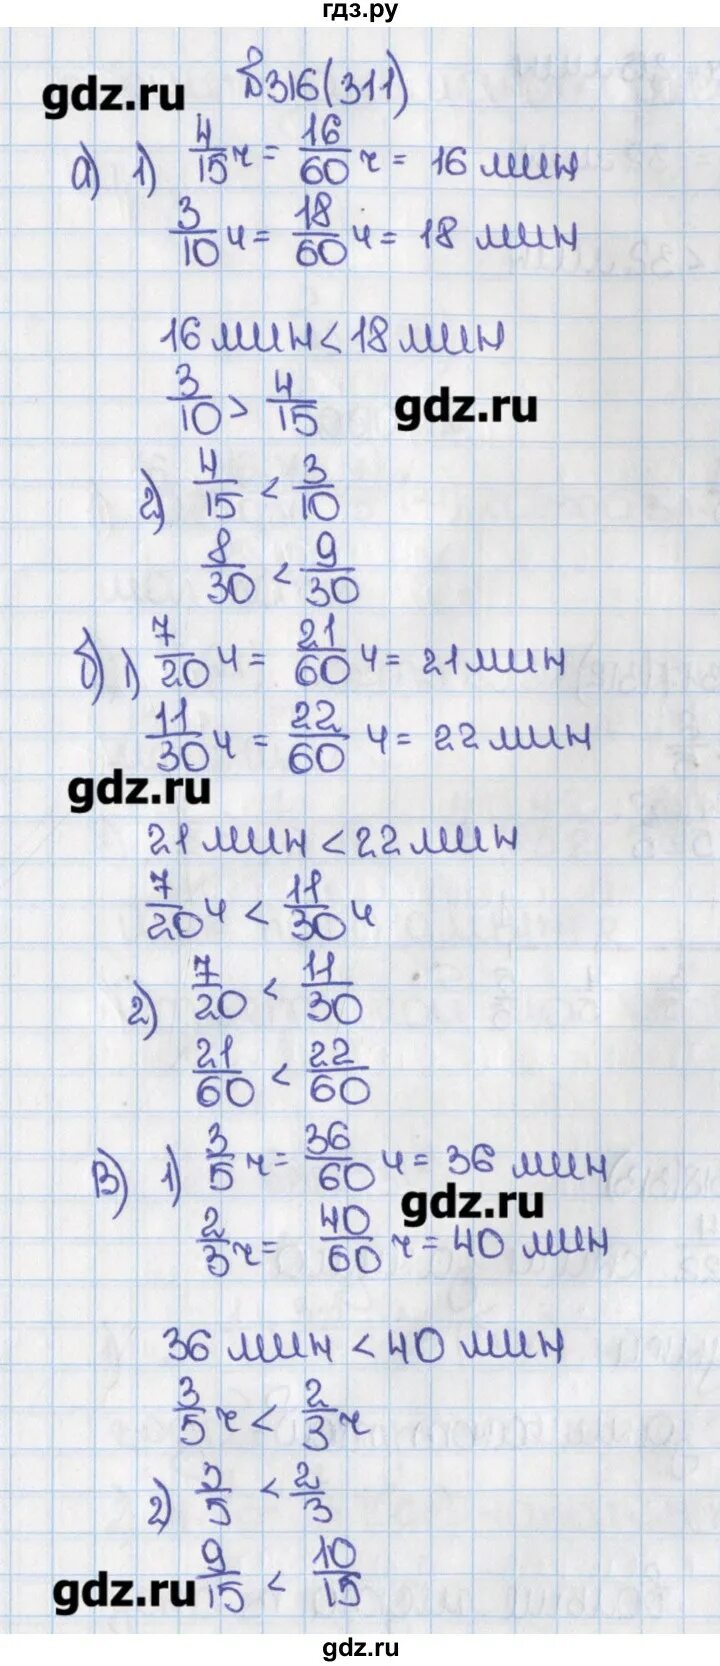 гдз.ру
gdz.ru
№316(311)
а) 1) 4/15 ч = 16/60 ч = 16 мин
3/10 ч = 18/60 ч = 18 мин
16 мин < 18 мин
3/10 > 4/15
gdz.ru
2) 4/15 < 3/10
8/30 < 9/30
б) 1) 7/20 ч = 21/60 ч = 21 мин
11/30 ч = 22/60 ч = 22 мин
gdz.ru
21 мин < 22 мин
7/20 ч < 11/30 ч
2) 7/20 < 11/30
21/60 < 22/60
в) 1) 3/5 ч = 36/60 ч = 36 мин
gdz.ru
2/3 ч = 40/60 ч = 40 мин
36 мин < 40 мин
3/5 ч < 2/3 ч
2) 3/5 < 2/3
9/15 < 10/15
gdz.ru
gdz.ru